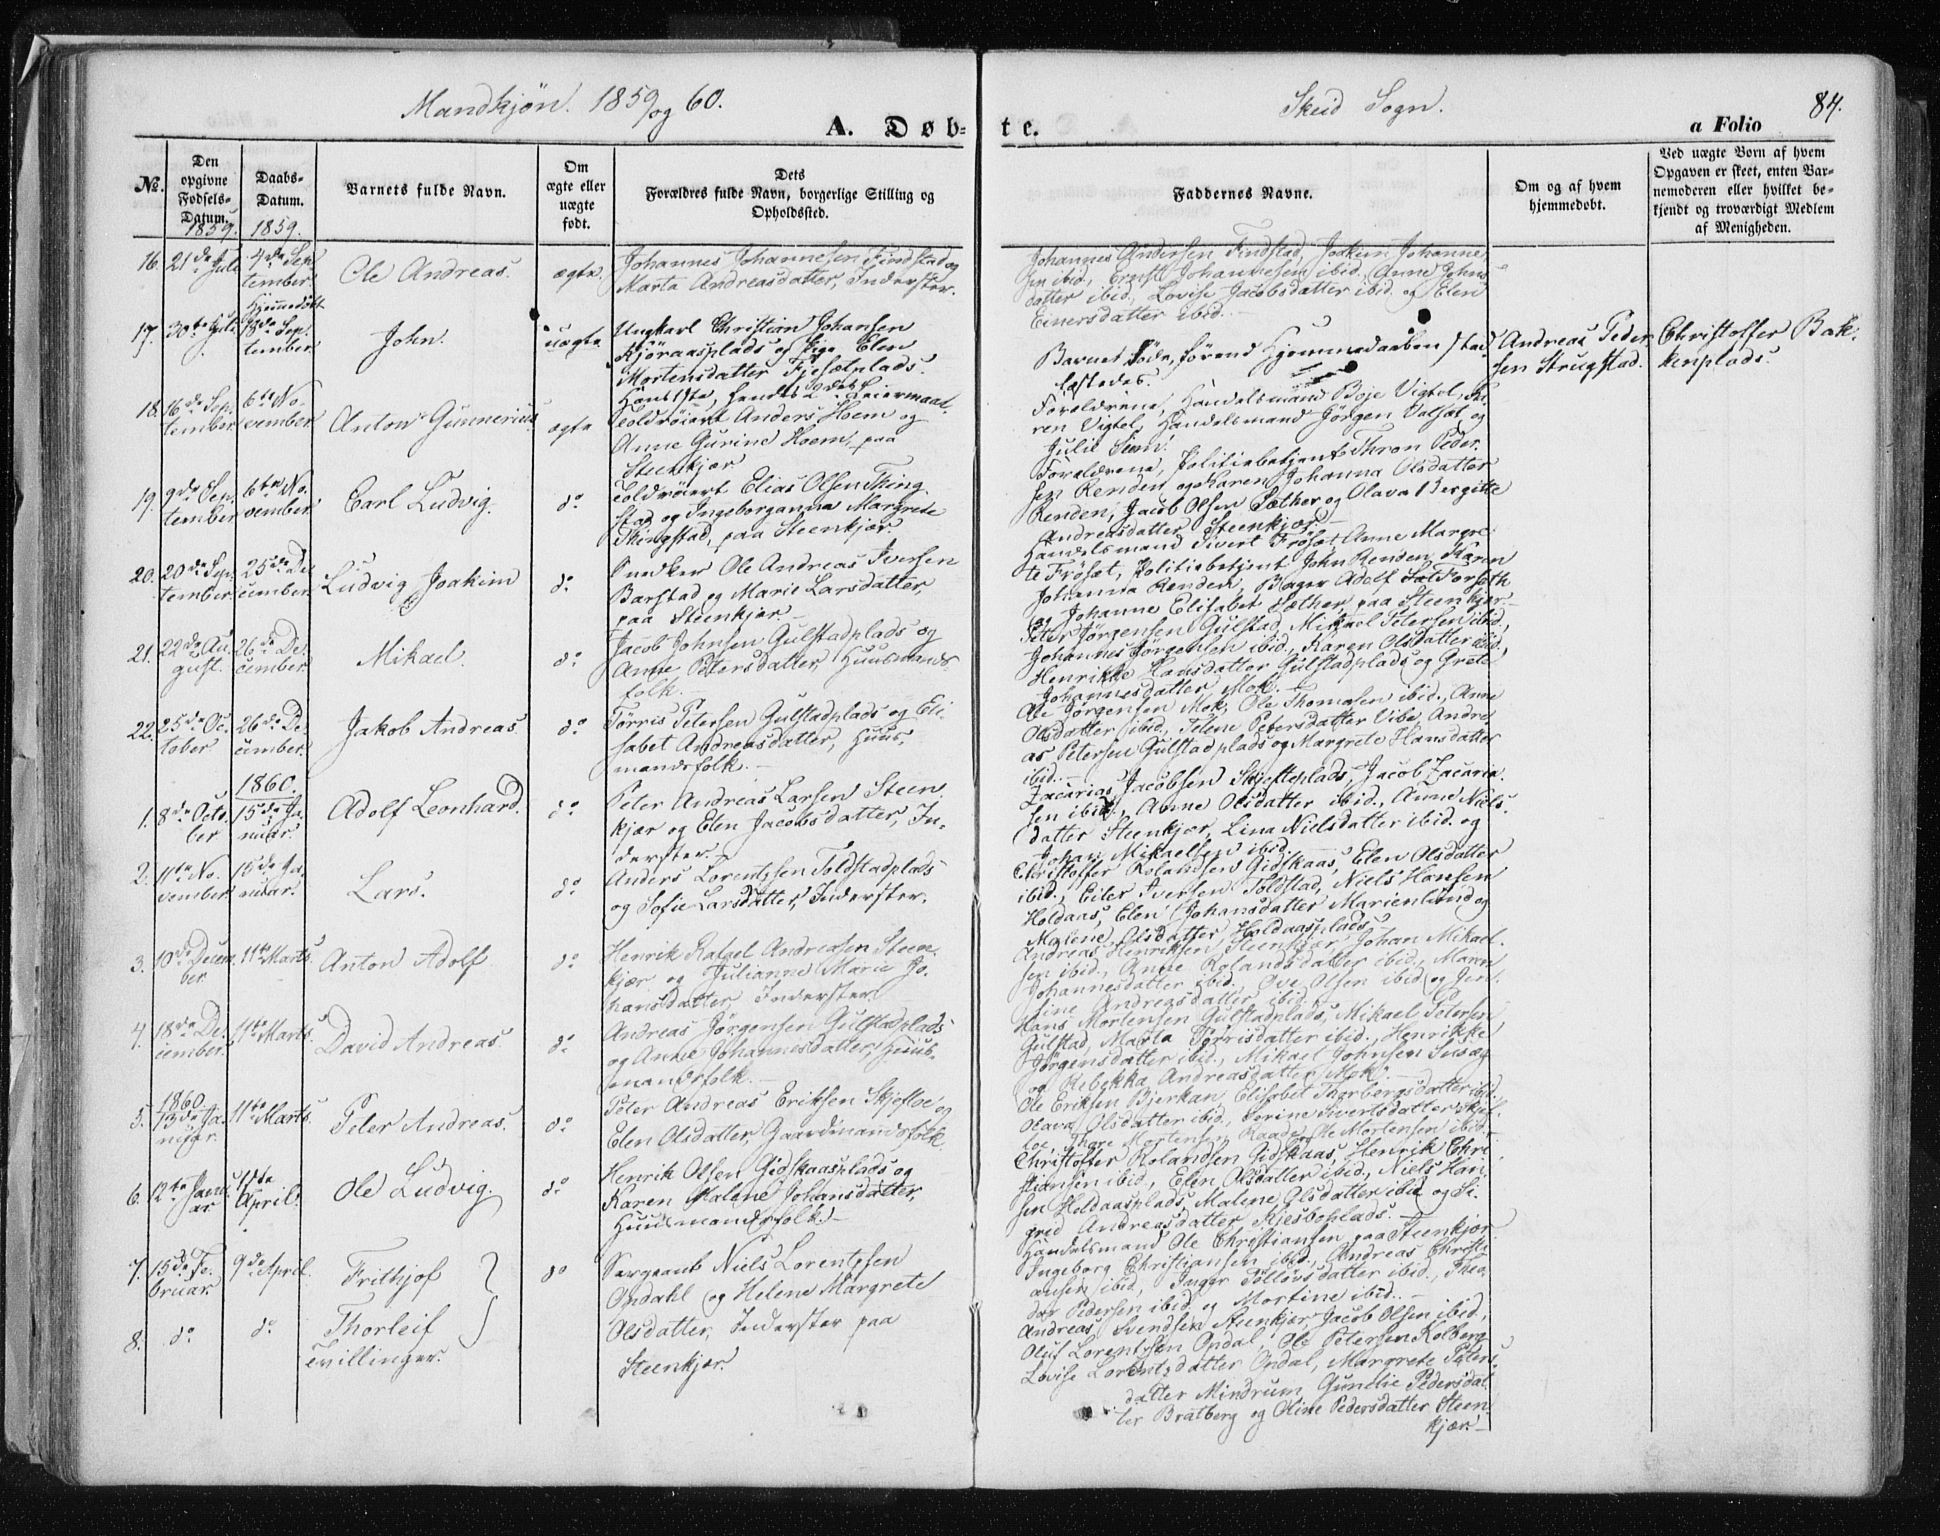 Mandkjøn. 1859 og 60.
Skeid Sogn.
84.
A. Døb-
te.
a Folio
No.
Den
opgivne
Fødsels-
Datum.
1859.
Daabs-
Datum.
1859.
Barnets fulde Navn.
Om
ægte eller
uægte
født.
Dets
Forældres fulde Navn, borgerlige Stilling og
Opholdssted.
Faddernes Navne.
Om og af hvem
hjemmedøbt.
Ved uægte Børn af hvem
Opgaven er skeet, enten Bar-
nemoderen eller hvilket be-
kjendt og troværdigt Medlem
af Menigheden.
16.
21de Juli
4de Sep
tember.
Ole Andreas.
ægte.
Johannes Johannesen Findstad og
Marta Andreasdatter, Inderster.
Johannes Andersen Findstad, Joakim Johanne-
sen ibid., Ernst Johannesen ibid., Anne Johns-
datter ibid., Lovise Jacobsdatter ibid. og Elen
Einersdatter ibid.
17.
30te Juli
Hjemmedøbt
18de Sep-
tember.
John.
uægte
Ungkarl Christian Johansen
Kjøraasplads og Pige Elen
Mortensdatter Fjesetplads.
Hans 1ste, hendes 2det Leiermaal.
Barnet døde, førend Hjemmedaaben stad-
fæstedes.
Andreas Peder-
sen Strugstad.
Christoffer Bak-
kenplads.
18.
16de Sep-
tember
6te No-
vember
Anton Gunnerius
ægte
Toldrorert Anders Hoem og
Anne Gurine Hoem, paa
Steenkjær
Forældrene, Handelsmand Boje Vigtel, Ka-
ren Vigtel, Handelsmand Jørgen Valsæt og
Julie Sem.
19.
9de Sep-
tember
6te No-
vember
Carl Ludvig.
do
Toldrorert Elias Olsen Thing-
stad og Ingeborganna Margrete
Thingstad, paa Steenkjær
Forældrene, Politiebetjent Thron Peder-
sen Renden og Karen Johanna Olsdatter
Renden, Jacob Olsen Sæther og Olava Bergitte
Andreasdatter Steenkjær.
20.
20de Sep-
tember
25de De-
cember
Ludvig Joakim
do
Snedker Ole Andreas Iversen
Barstad og Marie Larsdatter,
paa Steenkjær.
Handelsmand Sivert Frøset, Anne Margre-
te Frøset, Politiebetjent John Renden, Karen
Johanna Renden, Bager Adolf
og Johanne Elisabet Sæther, paa Steenkjær.
21.
22de Au-
gust.
26de De-
cember.
Mikael.
do
Jacob Johnsen Gulstadplads og
Anne Petersdatter, Huusmands-
folk.
Peter Jørgensen Gulstad, Mikael Petersen ibid.,
Johannes Jørgensen ibid., Karen Olsdatter ibid.,
Henrikke Hansdatter Gulstadplads og Grete
Johannesdatter Mok.
22.
25de Oc-
tober
26de De-
cember.
Jakob Andreas
do
Tørris Petersen Gulstadplads og Eli-
sabet Andreasdatter, Huus-
mandsfolk.
Ole Jørgensen Mok, Ole Thomasen ibid., Anne
Olsdatter ibid., Telene Petersdatter Vibe, Andre-
as Petersen Gulstadplads og Margrete Hansdatter
ibid.
1.
8de Octo-
ber
1860.
15de Ja-
nuar.
Adolf Leonhard.
do
Peter Andreas Larsen Steen-
kjær og Elen Jacobsdatter, In-
derster.
Zacarias Jacobsen Skjefteplads, Jacob Zacaria-
sen ibid., Anne Olsdatter ibid., Anne Niels-
datter Steenkjær, Lina Nielsdatter ibid. og
Johan Mikaelsen ibid.
2.
11te No-
vember
15de Ja-
nuar.
Lars.
do
Anders Lorentzsen Toldstadplads
og Sofie Larsdatter, Inderster.
Christoffer Rolandsen Gidskaas, Elen Olsdatter
ibid., Eiler Iversen Toldstad, Niels Hansen
Holdaas, Elen Johansdatter Marienlund og
Malene Olsdatter Holdaasplads.
3.
10de Decem-
ber
11te Marts.
Anton Adolf
do
Henrik Rafael Andreasen Steen-
kjær og Julianne Marie Jo-
hansdatter, Inderster.
Andreas Henriksen Steenkjær, Johan Mikael-
sen ibid., Anne Rolandsdatter ibid., Maren
Johannesdatter ibid., Ove Olsen ibid. og Jen-
sine Andreasdatter ibid.
4.
18de De-
cember
11te Marts.
David Andreas.
do
Andreas Jørgensen Gulstadplads
og Anne Johannesdatter, Huus-
mandsfolk.
Hans Mortensen Gulstadplads, Mikael Petersen
Gulstad, Marta Tørrisdatter ibid., Henrikke
Jørgensdatter ibid., Mikael Johnsen
og Rebekka Andreasdatter Mok.
5.
1860
13de Ja-
nuar.
11te Marts.
Peter Andreas.
do
Peter Andreas Eriksen Skjefloe og
Elen Olsdatter, Gaardmandsfolk.
Ole Eriksen Bjerkan, Elisabet Thorbergsdatter ibid.
Olava Olsdatter ibid., Serine Sivertsdatter Skjef-
loe, Mortensen Raade, Ole Mortensen ibid.
6.
12te Janu-
ar
1ste
April.
Ole Ludvig.
do
Henrik Olsen Gidskaasplads og
Karen Malene Johansdatter,
Huusmandsfolk.
Christoffer Rolandsen Gidskaas, Henrik Chri-
stiansen ibid., Elen Olsdatter ibid., Niels Han-
sen Heldaasplads, Malene Olsdatter ibid. og Si-
grid Andreasdatter Kjesboplads.
7.
15de Fe-
bruar.
9de April.
Frithjof
do
Sergeant Niels Lorentzsen
Opdahl og Helene Margrete
Olsdatter, Inderster paa
Steenkjær.
Handelsmand Ole Christiansen paa Steenkjær
Ingeborg Christiansen ibid., Andreas Christi-
ansen ibid., Inger Tollevsdatter ibid., Theo-
dor Pedersen ibid. og Mortine ibid.
8.
do
do
Thorleif
tvillinger.
Andreas Svendsen Steenkjær, Jacob Olsen ibid.,
Oluf Lorentzsen Opdal, Ole Petersen Kolberg
Lovise Lorentzdatter Opdal, Margrete Peters-
datter Mindrum, Gunelie Pedersdat-
ter Bratberg og Oline Pedersdatter Steen-
kjær.